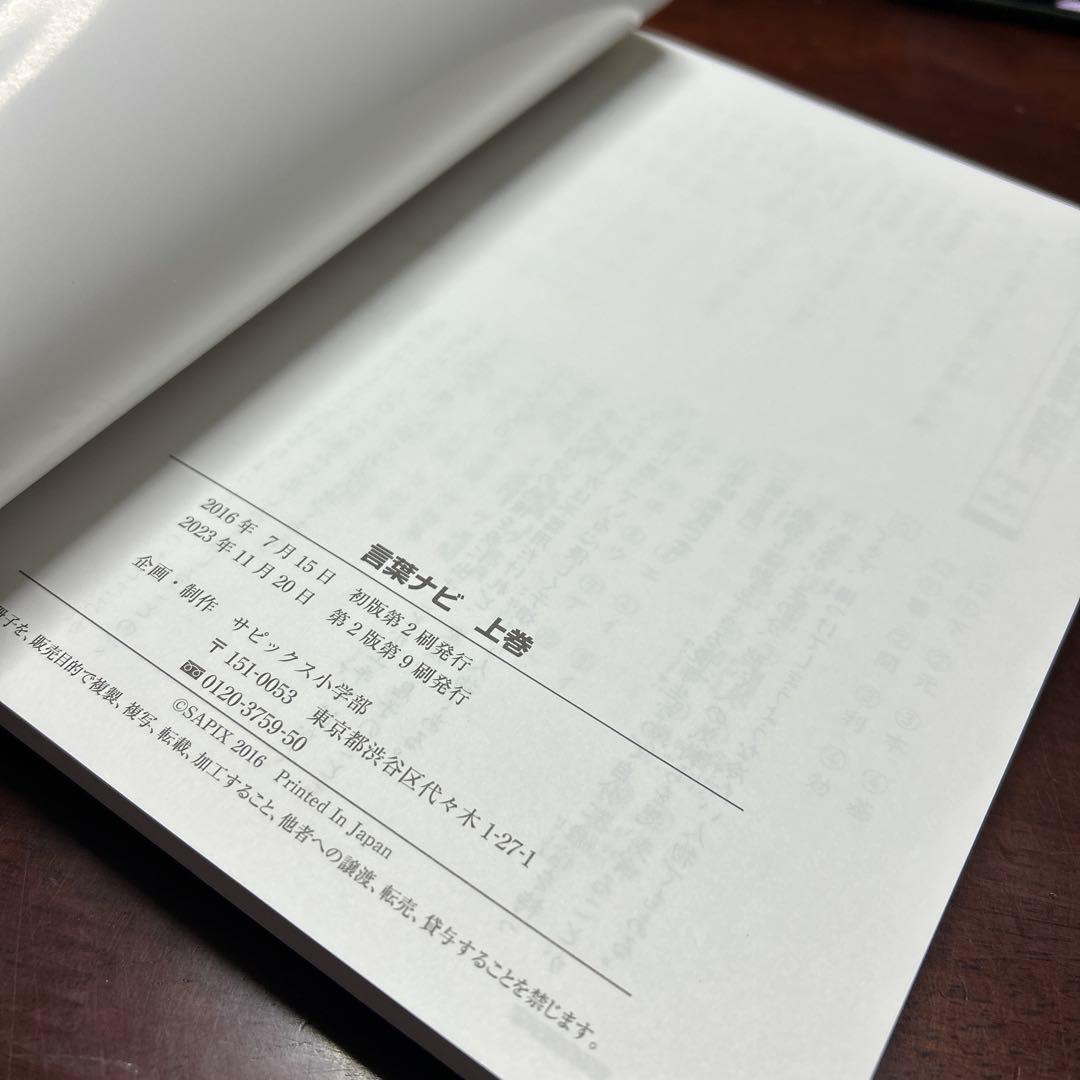 言葉ナビ 上巻
2016年 7月15日 初版第2刷発行
2023年11月20日 第2版第9刷発行
企画・制作 サピックス小学部
〒151-0053 東京都渋谷区代々木1-27-1
0120-3759-50
©SAPIX 2016 Printed In Japan
冊子を、販売目的で複製、複写、転載、加工すること、他者への譲渡、転売、貸与することを禁じます。